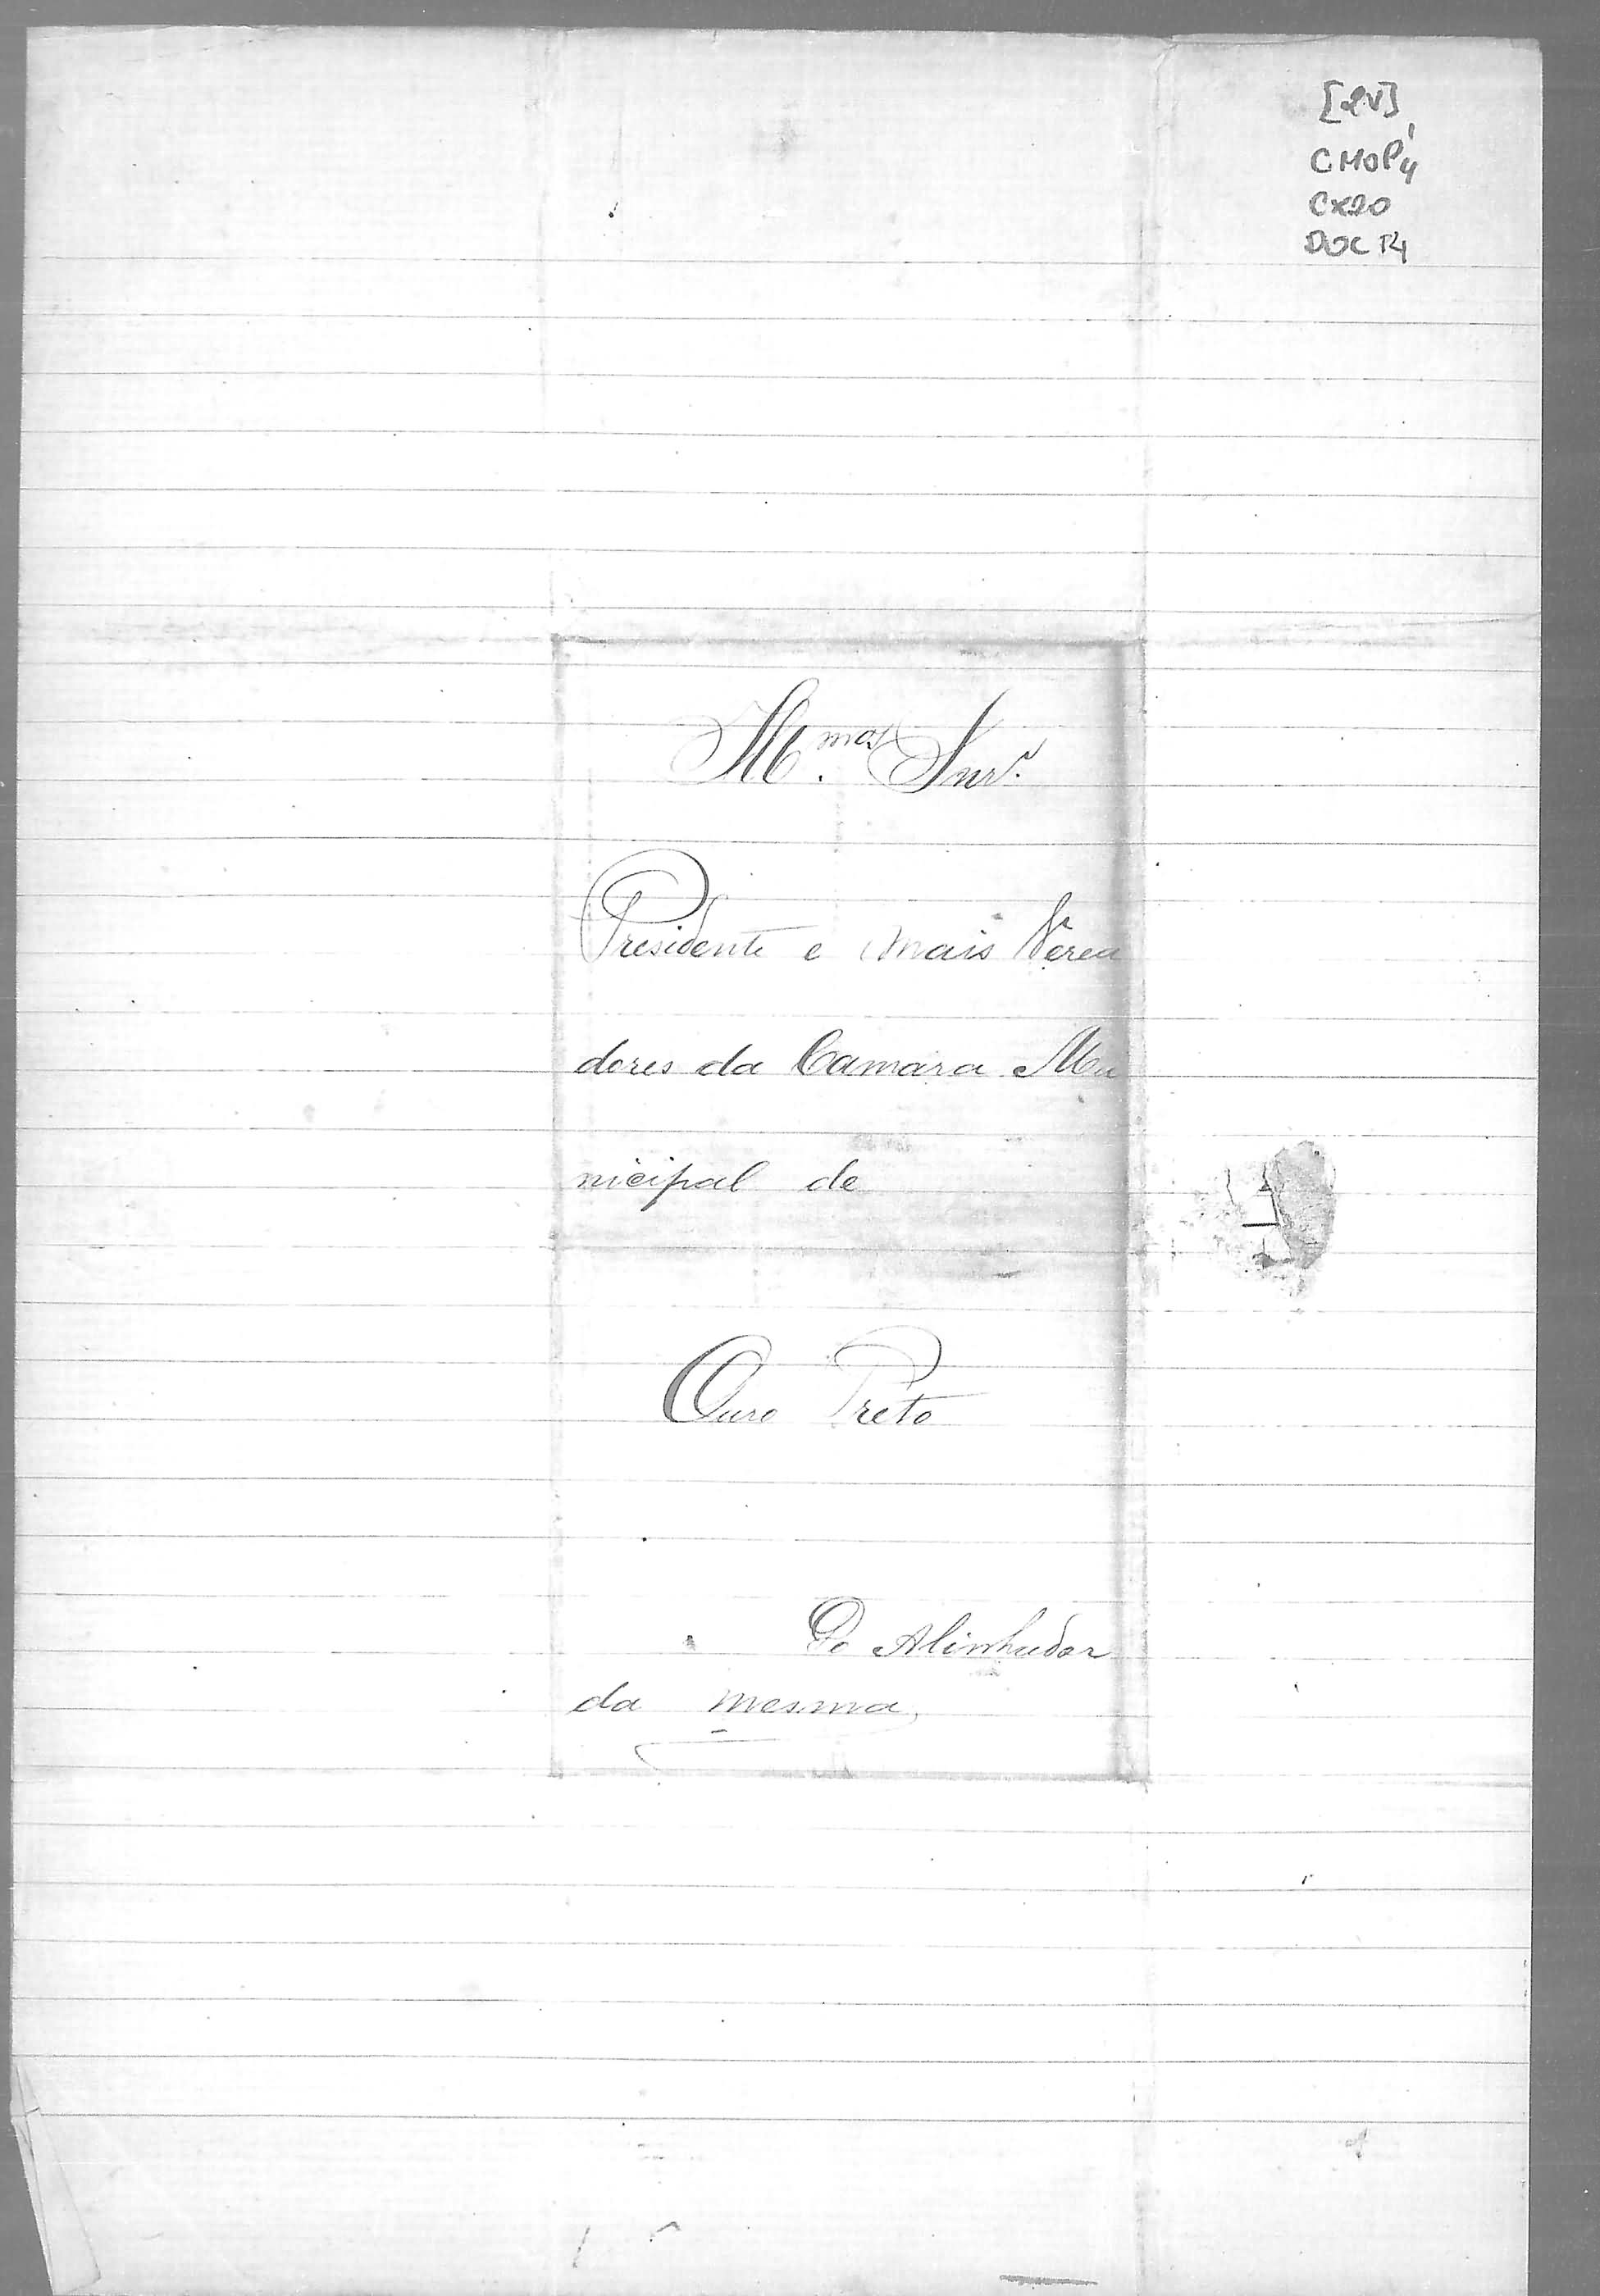 [2V]
CMOP 4
CX20
DOC 14
Ill.mos Snrs.
Presidente e mais Verea
dores da Camara Mu
nicipal de
Ouro Preto
Do Alinhador
da mesma